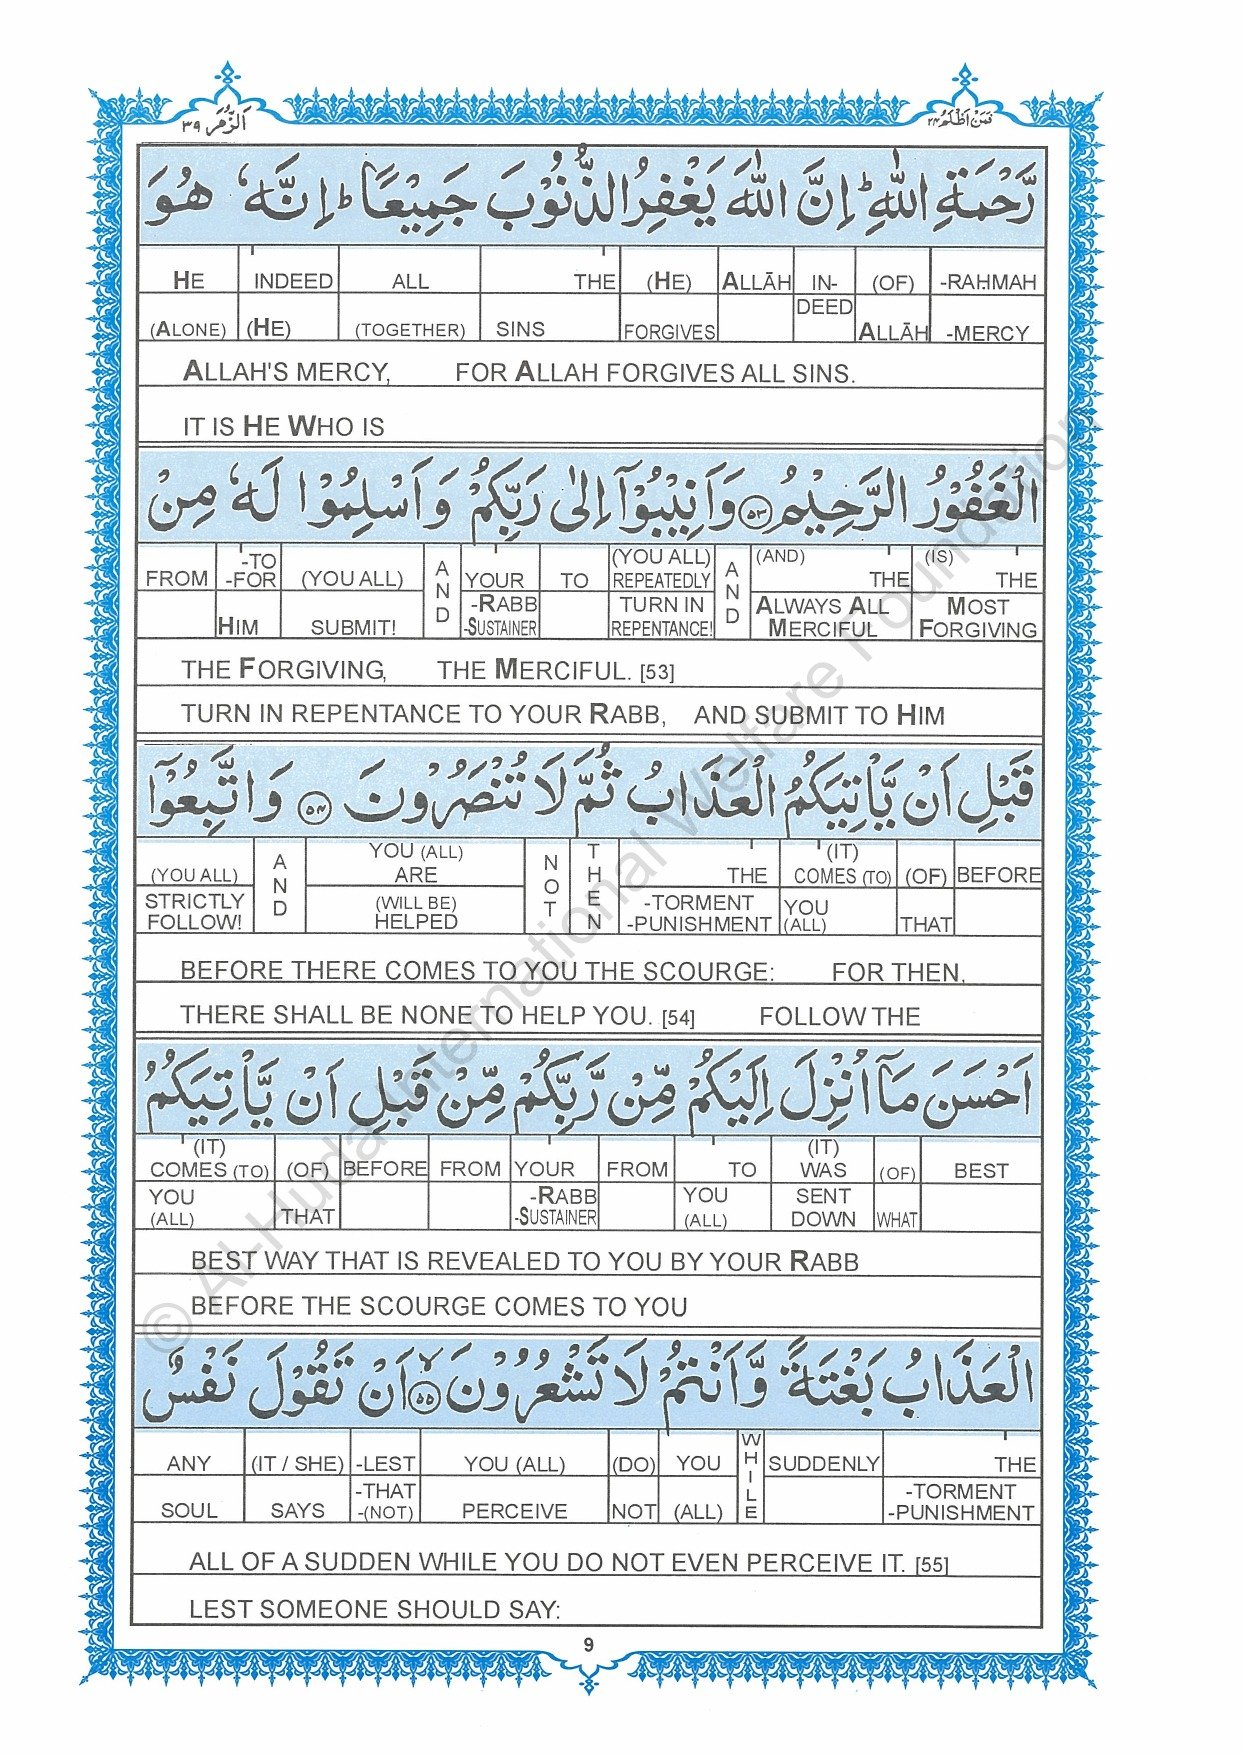 اَلزُّمَر ٣٩
فَمَنْ اَظْلَمُ ٢٤
رَّحْمَةِ اللّٰهِ ؕ اِنَّ اللّٰهَ يَغْفِرُ الذُّنُوْبَ جَمِيْعًا ؕ اِنَّهٗ هُوَ
HE INDEED ALL THE (HE) ALLĀH IN- (OF) -RAHMAH
(ALONE) (HE) (TOGETHER) SINS FORGIVES DEED ALLĀH -MERCY
ALLAH'S MERCY, FOR ALLAH FORGIVES ALL SINS.
IT IS HE WHO IS
الْغَفُوْرُ الرَّحِيْمُ ﴿٥٣﴾ وَاَنِيْبُوْۤا اِلٰى رَبِّكُمْ وَاَسْلِمُوْا لَهٗ مِنْ
FROM -TO -FOR (YOU ALL) AND YOUR TO (YOU ALL) REPEATEDLY AND (AND) THE (IS) THE
HIM SUBMIT! -RABB -SUSTAINER TURN IN REPENTANCE! ALWAYS ALL MERCIFUL MOST FORGIVING
THE FORGIVING, THE MERCIFUL. [53]
TURN IN REPENTANCE TO YOUR RABB, AND SUBMIT TO HIM
قَبْلِ اَنْ يَّاْتِيَكُمُ الْعَذَابُ ثُمَّ لَا تُنْصَرُوْنَ ﴿٥٤﴾ وَاتَّبِعُوْۤا
(YOU ALL) AND YOU (ALL) ARE NOT THEN THE (IT) COMES (TO) (OF) BEFORE
STRICTLY FOLLOW! (WILL BE) HELPED -TORMENT -PUNISHMENT YOU (ALL) THAT
BEFORE THERE COMES TO YOU THE SCOURGE: FOR THEN,
THERE SHALL BE NONE TO HELP YOU. [54] FOLLOW THE
اَحْسَنَ مَاۤ اُنْزِلَ اِلَيْكُمْ مِّنْ رَّبِّكُمْ مِّنْ قَبْلِ اَنْ يَّاْتِيَكُمُ
(IT) COMES (TO) (OF) BEFORE FROM YOUR FROM TO (IT) WAS (OF) BEST
YOU (ALL) THAT -RABB -SUSTAINER YOU (ALL) SENT DOWN WHAT
BEST WAY THAT IS REVEALED TO YOU BY YOUR RABB
BEFORE THE SCOURGE COMES TO YOU
الْعَذَابُ بَغْتَةً وَّاَنْتُمْ لَا تَشْعُرُوْنَ ﴿٥٥﴾ۙ اَنْ تَقُوْلَ نَفْسٌ
ANY (IT / SHE) -LEST YOU (ALL) (DO) YOU WHILE SUDDENLY THE
SOUL SAYS -THAT -(NOT) PERCEIVE NOT (ALL) -TORMENT -PUNISHMENT
ALL OF A SUDDEN WHILE YOU DO NOT EVEN PERCEIVE IT. [55]
LEST SOMEONE SHOULD SAY:
9
© Al-Huda International Welfare Foundation